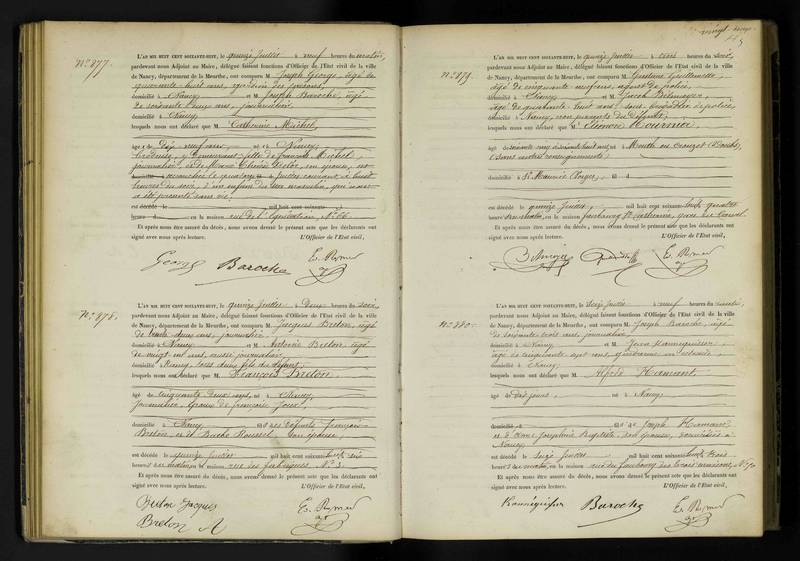 N° 877.
L'AN MIL HUIT CENT SOIXANTE-HUIT, le quinze Juillet à neuf heures du matin,
pardevant nous Adjoint au Maire, délégué faisant fonctions d'Officier de l'Etat civil de la ville
de Nancy, département de la Meurthe, ont comparu M. Joseph George, âgé de
quarante huit ans, gardien des prisons,
domicilié à Nancy et M. Joseph Baroche, âgé
de soixante deux ans, journalier,
domicilié à Nancy
lesquels nous ont déclaré que M. Catherine Michel,
âgé e de dix neuf ans, né e à Nancy,
brodeuse, y demeurant, fille de François Michel,
journalier, et de Marie Thérèse son épouse, est
accouchée le quatorze Juillet courant à huit
heures du soir, d'un enfant du sexe masculin, qui nous
a été présenté sans vie.
est décédé le mil huit cent soixante-
heure d en la maison rue de l'Equitation, N° 66.
Et après nous être assuré du décès, nous avons dressé le présent acte que les déclarants ont
signé avec nous après lecture. L'Officier de l'Etat civil,
George Baroche
N° 878.
L'AN MIL HUIT CENT SOIXANTE-HUIT, le quinze Juillet à Deux heures du soir,
pardevant nous Adjoint au Maire, délégué faisant fonctions d'Officier de l'Etat civil de la ville
de Nancy, département de la Meurthe, ont comparu M. Jacques Breton, âgé
de trente deux ans, journalier,
domicilié à Nancy et M. Antoine Breton, âgé
de vingt un ans, aussi journalier,
domicilié à Nancy, tous deux fils du défunt,
lesquels nous ont déclaré que M. François Breton,
âgé de cinquante deux ans, né à
journalier, époux de françoise
domicilié à Nancy et des défunts françois
Breton et de Barbe Roussel son épouse,
est décédé le quinze Juillet mil huit cent soixante-huit, à six
heures du matin, en la maison rue des fabriques N° 3.
Et après nous être assuré du décès, nous avons dressé le présent acte que les déclarants ont
signé avec nous après lecture. L'Officier de l'Etat civil,
Breton Jacques
Breton A
N° 879.
L'AN MIL HUIT CENT SOIXANTE-HUIT, le quinze Juillet à trois heures du soir,
pardevant nous Adjoint au Maire, délégué faisant fonctions d'Officier de l'Etat civil de la ville
de Nancy, département de la Meurthe, ont comparu M. Gustave
âgé de cinquante neuf ans, agent de police,
domicilié à Nancy et M. Jacob
âgé de quarante huit ans, sous brigadier de police,
domicilié à Nancy, non parents du défunt,
lesquels nous ont déclaré que M.
né à Mouth
(sans autres renseignements)
domicilié à St Maurice
est décédé le quinze Juillet, mil huit cent soixante-huit, à quatre
heures du matin, en la maison faubourg St Catherine, gare du Canal.
Et après nous être assuré du décès, nous avons dressé le présent acte que les déclarants ont
signé avec nous après lecture. L'Officier de l'Etat civil,
N° 880.
L'AN MIL HUIT CENT SOIXANTE-HUIT, le seize Juillet à neuf heures du matin,
pardevant nous Adjoint au Maire, délégué faisant fonctions d'Officier de l'Etat civil de la ville
de Nancy, département de la Meurthe, ont comparu M. Joseph Baroche, âgé
de soixante trois ans, journalier,
domicilié à Nancy et M. Jean
âgé de cinquante sept ans,
domicilié à Nancy
lesquels nous ont déclaré que M. Alfred Hamant,
âgé de dix jours, né à Nancy,
domicilié à fils de Joseph Hamant
et de Anne Joséphine Baptiste son épouse, domiciliés à
Nancy,
est décédé le seize Juillet mil huit cent soixante-huit, à trois
heures du matin, en la maison rue du faubourg des trois maisons, N°
Et après nous être assuré du décès, nous avons dressé le présent acte que les déclarants ont
signé avec nous après lecture. L'Officier de l'Etat civil,
Baroche